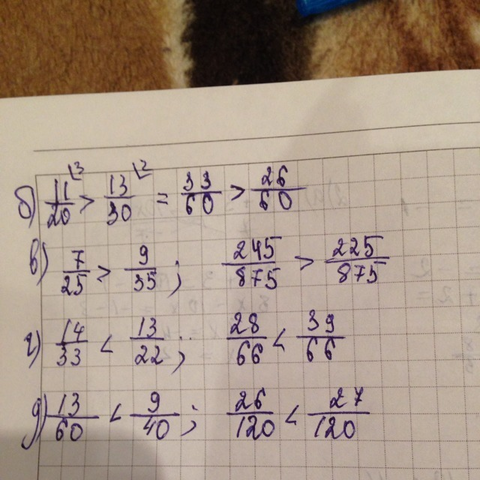 б) 11/20 |3 > 13/30 |2 = 33/60 > 26/60
в) 7/25 > 9/35; 245/875 > 225/875
г) 14/33 < 13/22; 28/66 < 39/66
д) 13/60 < 9/40; 26/120 < 27/120